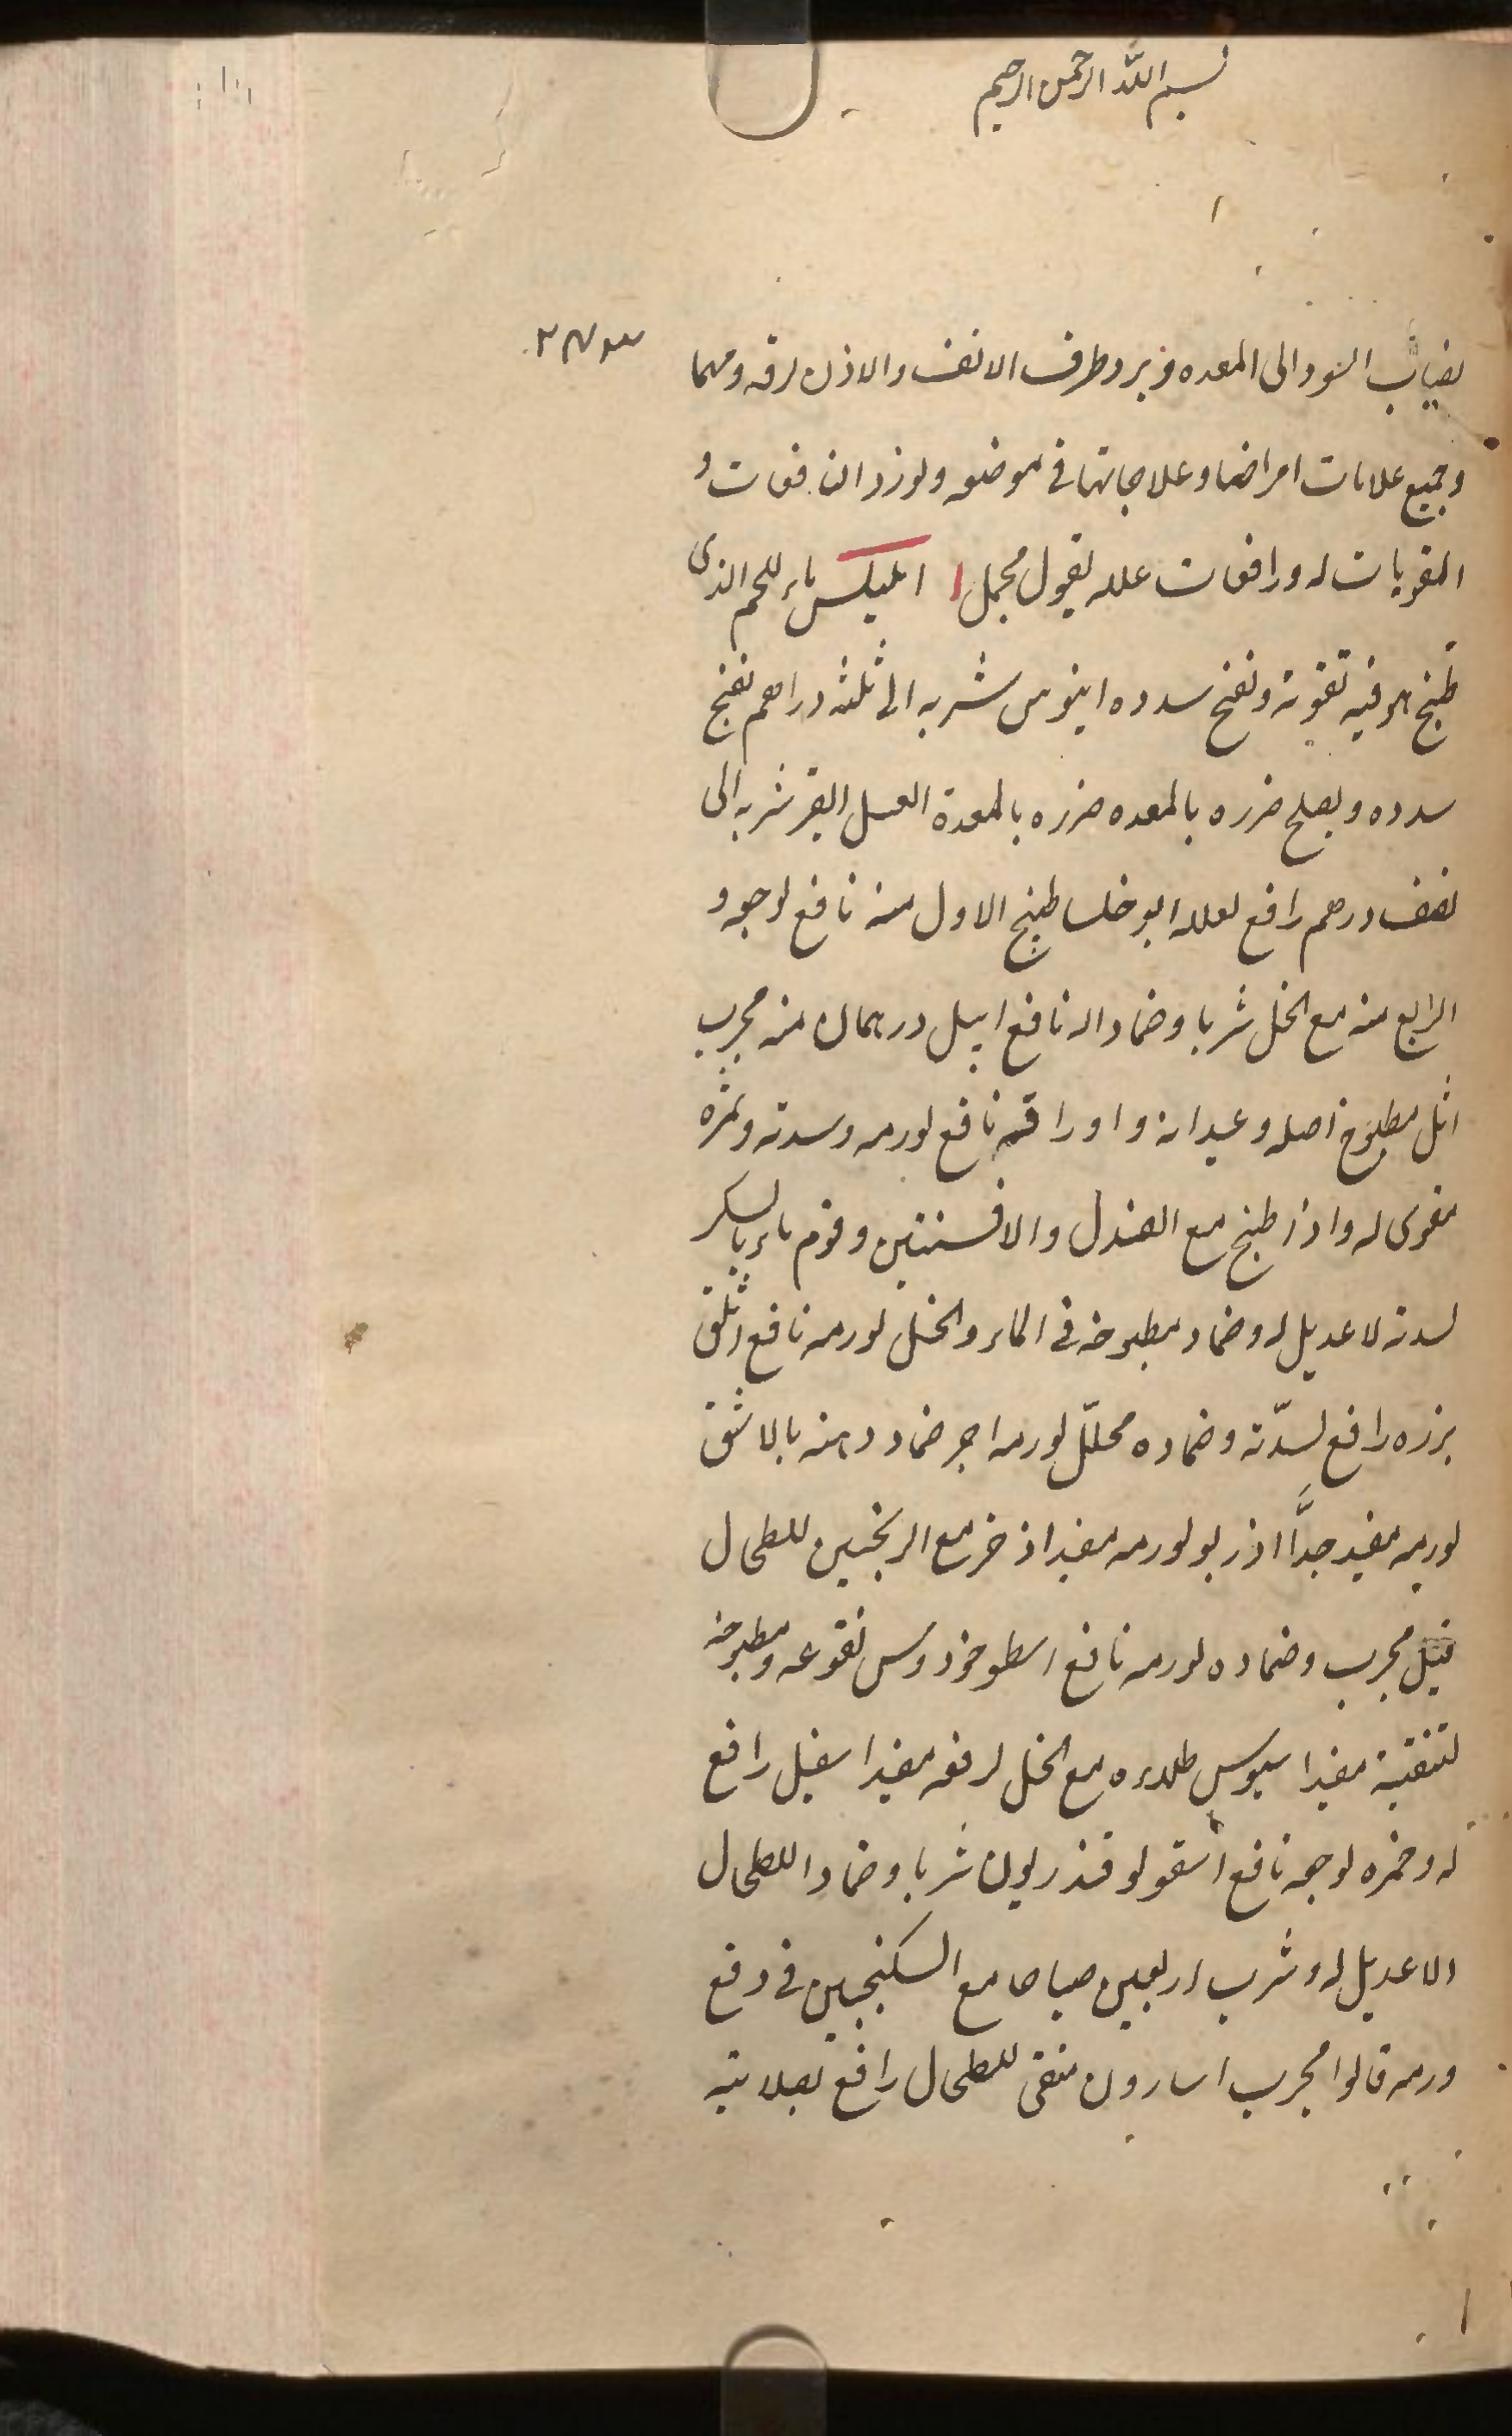 بسم الله الرحمن الرحيم
السودا الى المعده وبرد طرف الانف والاذن لرقه ومهما
وجميع علامات امراضها وعلاجاتها فى موضعه ولورد النافعات و
المقويات له ورافعات علله بقول مجمل ا ماء اللحم الذى
طبخ هو فيه تقويه وتفتح سدده ابنوس شربه الى ثلثه دراهم تفتح
سدده ويصلح ضرره بالمعده ضرره بالمعدة العسل شربه الى
نصف درهم رافع لعلله ابوخلسا طبخ الاول منه نافع لوجعه و
الرابع منه مع الخل شربا وضمادا له نافع ابهل درهمان منه مجرب
اثل مطبوخ اصله وعيدانه واوراقه نافع لورمه وسدته وثمره
مقوى له واذا طبخ مع الصندل والافسنتين وقوم ماءه بالسكر
لسدته لا عديل له وضماد مطبوخه فى الماء والخل لورمه نافع اثلق
بزره رافع لسدّته وضماده محلّل لورمه اجر ضماد دهنه بالاشق
لورمه مفيد جدًّا اذربو لورمه مفيد اذخر مع للطحال
قيل مجرب وضماده لورمه نافع اسطوخودوس نقوعه ومطبوخه
لتنقيته مفيد اسيوس طلاءه مع الخل لرفعه مفيد اسقيل رافع
له وخمره لوجعه نافع اسقولوقندريون شربا وضمادا للطحال
لا عديل له وشرب اربعين صباحا مع السكنجبين فى دفع
ورمه قالوا مجرب اسارون منقى للطحال رافع لصلابته